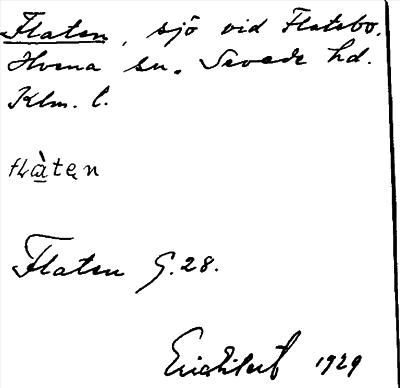 Flaten, sjö vid Flatebo,
Hvena sn. Sevede hd.
Klm. l.
flàten
Flaten G. 28.
1929